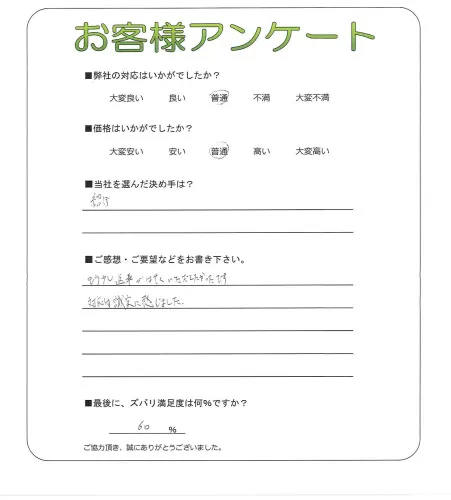 お客様アンケート
■弊社の対応はいかがでしたか？
大変良い 良い 普通 不満 大変不満
■価格はいかがでしたか？
大変安い 安い 普通 高い 大変高い
■当社を選んだ決め手は？
紹介
■ご感想・ご要望などをお書き下さい。
もう少し返事がはやくいただきたかったです
対応は誠実に感じました.
■最後に、ズバリ満足度は何%ですか？
60 %
ご協力頂き、誠にありがとうございました。